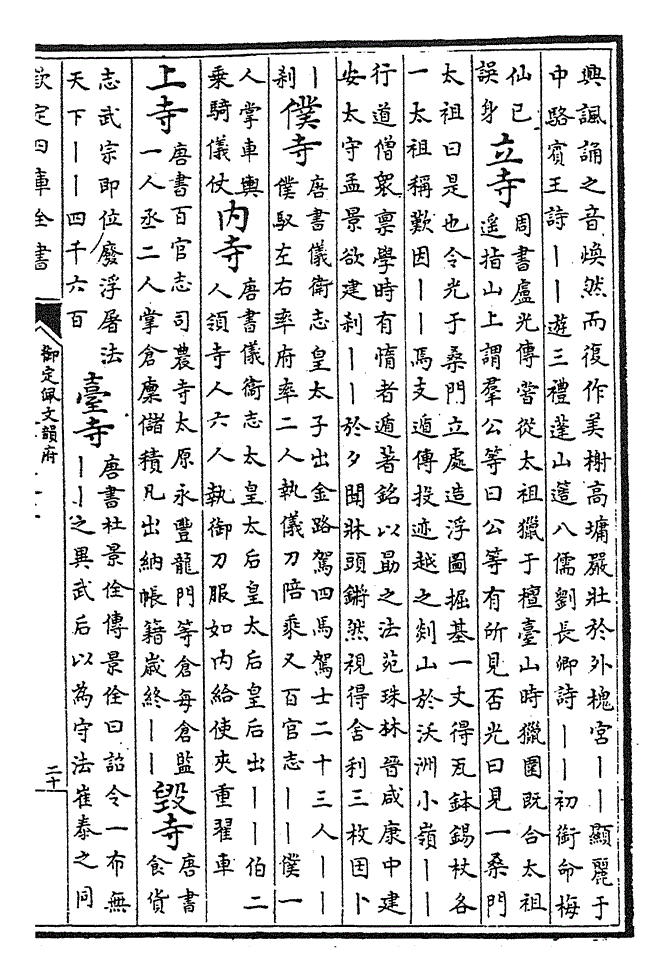 興諷誦之音煥然而復作美榭高墉嚴壯於外槐宮丨丨顯麗于
中駱賓王詩丨丨遊三禮蓬山簉八儒劉長卿詩丨丨初銜命梅
仙已
誤身
立寺
周書盧光傳嘗從太祖獵于檀臺山時獵圍既合太祖
遙指山上謂羣公等曰公等有所見否光曰見一桑門
太祖曰是也令光于桑門立處造浮圖掘基一丈得瓦鉢錫杖各
一太祖稱歎因丨丨焉支遁傳投迹越之剡山於沃洲小嶺丨丨
行道僧衆稟學時有惰者遁著銘以勗之法苑珠林晉咸康中建
安太守孟景欲建刹丨丨於夕聞牀頭鏘然視得舍利三枚因卜
丨
刹
僕寺
唐書儀衛志皇太子出金路駕四馬駕士二十三人丨丨
僕馭左右率府率二人執儀刀陪乘又百官志丨丨僕一
人掌車輿
乘騎儀仗
內寺
唐書儀衛志太皇太后皇太后皇后出丨丨伯二
人領寺人六人執御刀服如內給使夾重翟車
上寺
唐書百官志司農寺太原永豐龍門等倉每倉監
一人丞二人掌倉廩儲積凡出納帳籍歲終丨丨
毀寺
唐書
食貨
志武宗即位廢浮屠法
天下丨丨四千六百
臺寺
唐書杜景佺傳景佺曰詔令一布無
丨丨之異武后以為守法崔泰之同
欽定四庫全書
御定佩文韻府
二十